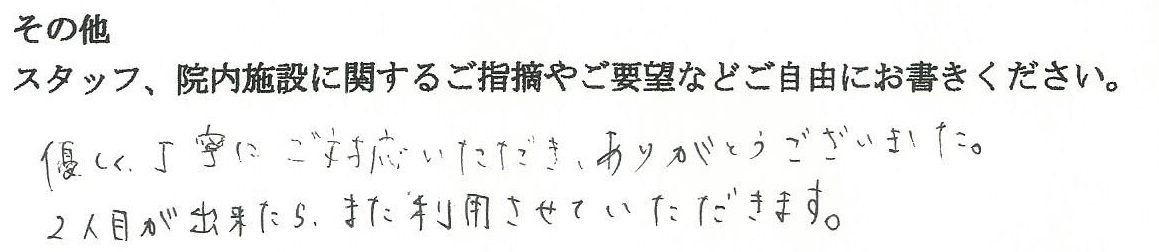 その他
スタッフ、院内施設に関するご指摘やご要望などご自由にお書きください。
優しく、丁寧にご対応いただき、ありがとうございました。
2人目が出来たら、また利用させていただきます。